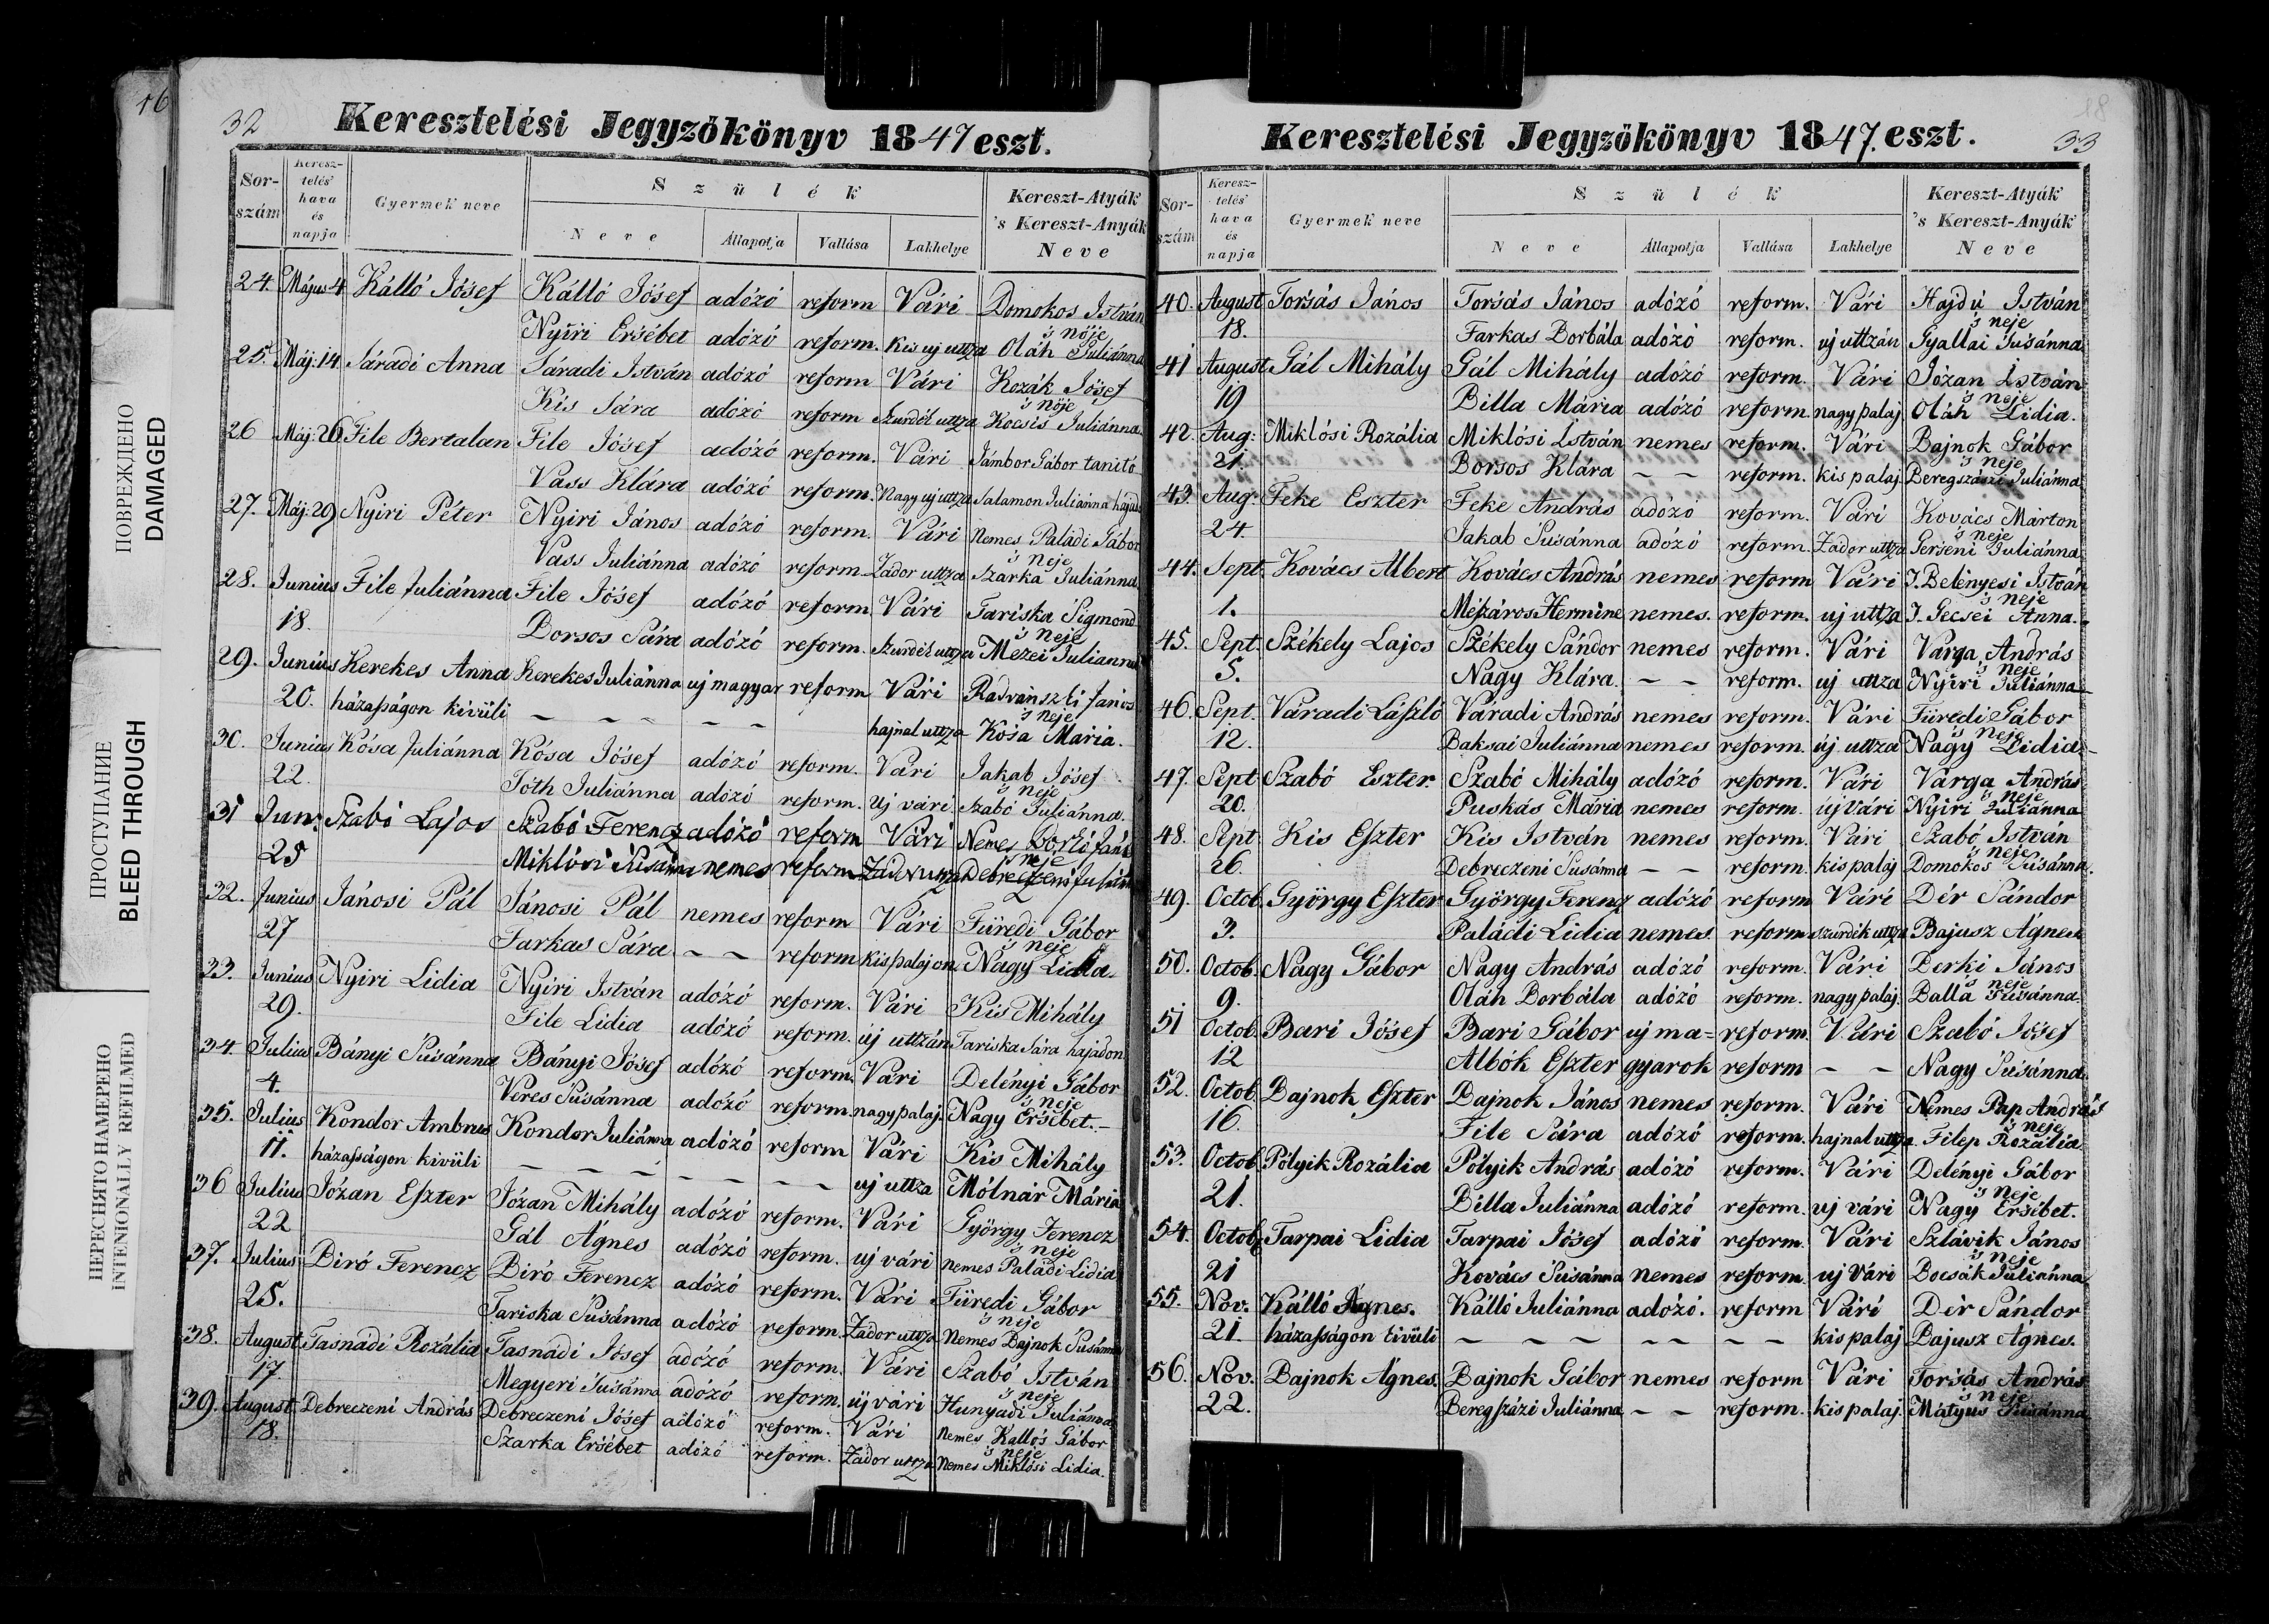 16
32
Keresztelési Jegyzőkönyv 1847 eszt.
Sor-szám
Keresz-telés' hava és napja
Gyermek neve
Szülék
Neve
Állapotja
Vallása
Lakhelye
Kereszt-Atyák 's Kereszt-Anyák Neve
24. Május 4 Kálló Jósef Kálló Jósef adózó reform Vári Domokos István
Nyiri Ersébet adózó reform. Kis uj uttza 's nője Oláh Juliánna
25. Máj: 14 Sáradi Anna Sáradi István adózó reform Vári Kozák Jósef
Kis Sára adózó reform Szurdék uttza 's nője Kocsis Juliánna
26 Máj: 26 File Bertalan File Jósef adózó reform. Vári Jámbor Gábor tanitó
Vass Klára adózó reform. Nagy uj uttza Salamon Juliánna hajad
27. Máj: 29 Nyiri Péter Nyiri János adózó reform. Vári Nemes Paládi Gábor
Vass Juliánna adózó reform Zádor uttza 's neje Szarka Juliánna
28. Junius File Juliánna File Jósef adózó reform Vári Tariska Sigmond
18. Borsos Sára adózó reform. Szurdék uttza 's neje Mezei Julianna
29. Junius Kerekes Anna Kerekes Juliánna uj magyar reform Vári Radvanszki János
20. házasságon kivüli – – – – – hajnal uttza 's neje Kósa Mária.
30. Junius Kósa Juliánna Kósa Jósef adózó reform. Vári Jakab Jósef
22. Tóth Juliánna adózó reform. Uj vári 's neje Szabó Juliánna.
31 Jun: Szabó Lajos Szabó Ferencz adózó reform Vári Nemes
25 Miklósi Susánna nemes reform Zádor uttza 's neje Debreczeni Julián
32. Junius Jánosi Pál Jánosi Pál nemes reform Vári Füredi Gábor
27 Farkas Sára – – reform kis palaj on 's neje Nagy Lidia.
33. Junius Nyiri Lidia Nyiri István adózó reform. Vári Kis Mihály
29. File Lidia adózó reform. új uttzán Tariska Sára hajadon
34. Julius Bányi Susánna Bányi Jósef adózó reform. Vári Delényi Gábor
4. Veres Susánna adózó reform. nagy palaj. 's neje Nagy Ersébet.–
35. Julius Kondor Ambrus Kondor Juliánna adózó reform Vári Kis Mihály
11. házasságon kivüli – – – – – – – uj uttza Mólnár Mária
36 Julius Józan Eszter Józan Mihály adózó reform. Vári György Ferencz
22 Gál Ágnes adózó reform. uj vári 's neje nemes Paládi Lidia
37. Julius Biró Ferencz Biró Ferencz adózó reform. Vári Füredi Gábor
25. Tariska Susánna adózó reform. Zádor uttza 's neje Nemes Bajnok Susánna
38. August Tasnádi Rozália Tasnádi Jósef adózó reform. Vári Szabó István
17. Megyeri Susánna adózó reform. uj vári 's neje Hunyadi Juliánna
39. August Debreczeni András Debreczeni Jósef adózó reform. Vári Nemes Kallós Gábor
18. Szarka Ersébet adózó reform. Zádor uttza 's neje Nemes Miklósi Lidia.
18
33
Keresztelési Jegyzőkönyv 1847. eszt.
Sor-szám
Keresz-telés' hava és napja
Gyermek neve
Szülék
Neve
Állapotja
Vallása
Lakhelye
Kereszt-Atyák 's Kereszt-Anyák Neve
40. August Torsás János Torsás János adózó reform. Vári Hajdú István
18. Farkas Borbála adózó reform. uj uttzán 's neje Gyallai Susánna
41 August Gál Mihály Gál Mihály adózó reform. Vári Józan István
19 Billa Mária adózó reform. nagy palaj 's neje Oláh Lidia.
42. Aug: Miklósi Rozália Miklósi István nemes reform. Vári Bajnok Gábor
21. Borsos Klára – – reform. kis palaj 's neje Beregszászi Juliánna
43. Aug: Feke Eszter Feke András adózó reform. Vári Kovács Márton
24. Jakab Susánna adózó reform. Zádor uttza 's neje Perseni Juliánna
44. Sept. Kovács Albert Kovács András nemes reform Vári I. Belényesi István
1. Mészáros Hermine nemes. reform. uj uttza 's neje I. Gecsei Anna.–
45. Sept. Székely Lajos Székely Sándor nemes reform. Vári Varga András
5. Nagy Klára. – – reform. uj uttza 's neje Nyiri Juliánna
46. Sept. Váradi László Váradi András nemes reform. Vári Füredi Gábor
12. Baksai Juliánna nemes reform. új uttza 's neje Nagy Lidia–
47. Sept Szabó Eszter. Szabó Mihály adózó reform. Vári Varga András
20. Puskás Mária nemes reform. uj vári 's neje Nyiri Juliánna
48. Sept Kis Eszter Kis István nemes reform. Vári Szabó István
26. Debreczeni Susánna – – reform. kis palaj 's neje Domokos Susánna.
49. Octob. György Eszter György Ferencz adózó reform Vári Dér Sándor
3. Paládi Lidia nemes. reform szurdék uttza Bajusz Ágnes
50. Octob. Nagy Gábor Nagy András adózó reform. Vári Derki János
9. Oláh Borbála adózó reform. nagy palaj. 's neje Balla Susánna.
51 Octob. Bari Jósef Bari Gábor uj ma= reform. Vári Szabó Jósef
12 Albók Eszter gyarok reform – – Nagy Susánna.
52. Octob. Bajnok Eszter Bajnok János nemes reform. Vári Nemes Pap András
16. File Sára adózó reform. hajnal uttza 's neje Filep Rozália
53. Octob Pólyik Rozália Pólyik András adózó reform. Vári Delényi Gábor
21. Billa Juliánna adózó reform. uj vári 's neje Nagy Ersébet.
54. Octob. Tarpai Lidia Tarpai Jósef adózó reform. Vári Szlávik János
21 Kovács Susánna nemes reform. uj Vári 's neje Bocsák Juliánna
55. Nov. Kálló Ágnes. Kálló Juliánna adózó. reform Vári Dér Sándor
21. házasságon kivüli – – – – – – – kis palaj Bajusz Ágnes.
56. Nov. Bajnok Ágnes. Bajnok Gábor nemes reform Vári Torsás András
22. Beregszázi Juliánna – – reform. kis palaj. 's neje Mátyus Susánna
ПОВРЕЖДЕНО
DAMAGED
ПРОСТУПАНИЕ
BLEED THROUGH
ПЕРЕСНЯТО НАМЕРЕНО
INTENIONALLY REFILMED